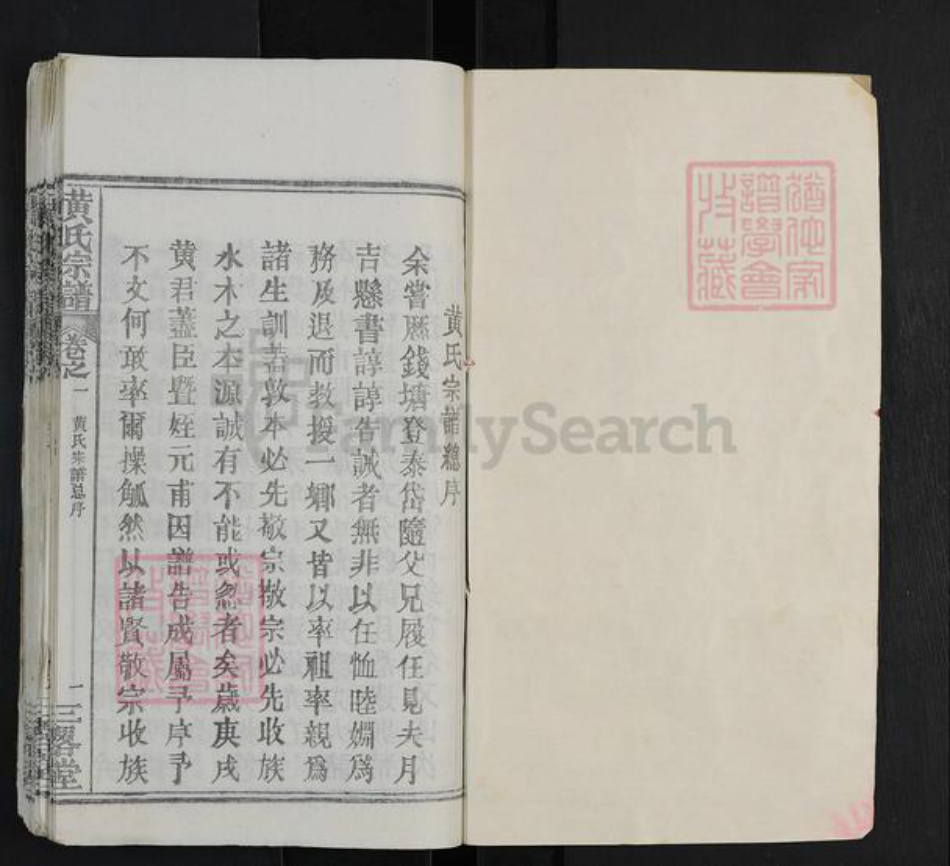 黄氏宗譜總序
余嘗歴錢塘登泰岱隨父兄履任見夫月
吉懸書諄諄告誡者無非以任恤睦婣爲
務及退而教授一鄉又皆以率祖率親爲
諸生訓若敦本必先敬宗敬宗必先收族
水木之本源誠有不能或忽者矣歲庚戌
黄君藎臣暨姪元甫因譜告成屬予序予
不文何敢率爾操觚然以諸賢敬宗收族
黄氏宗譜
卷之一
黄氏宗譜总序
一
三畧堂
譜學會
收藏
FamilySearch